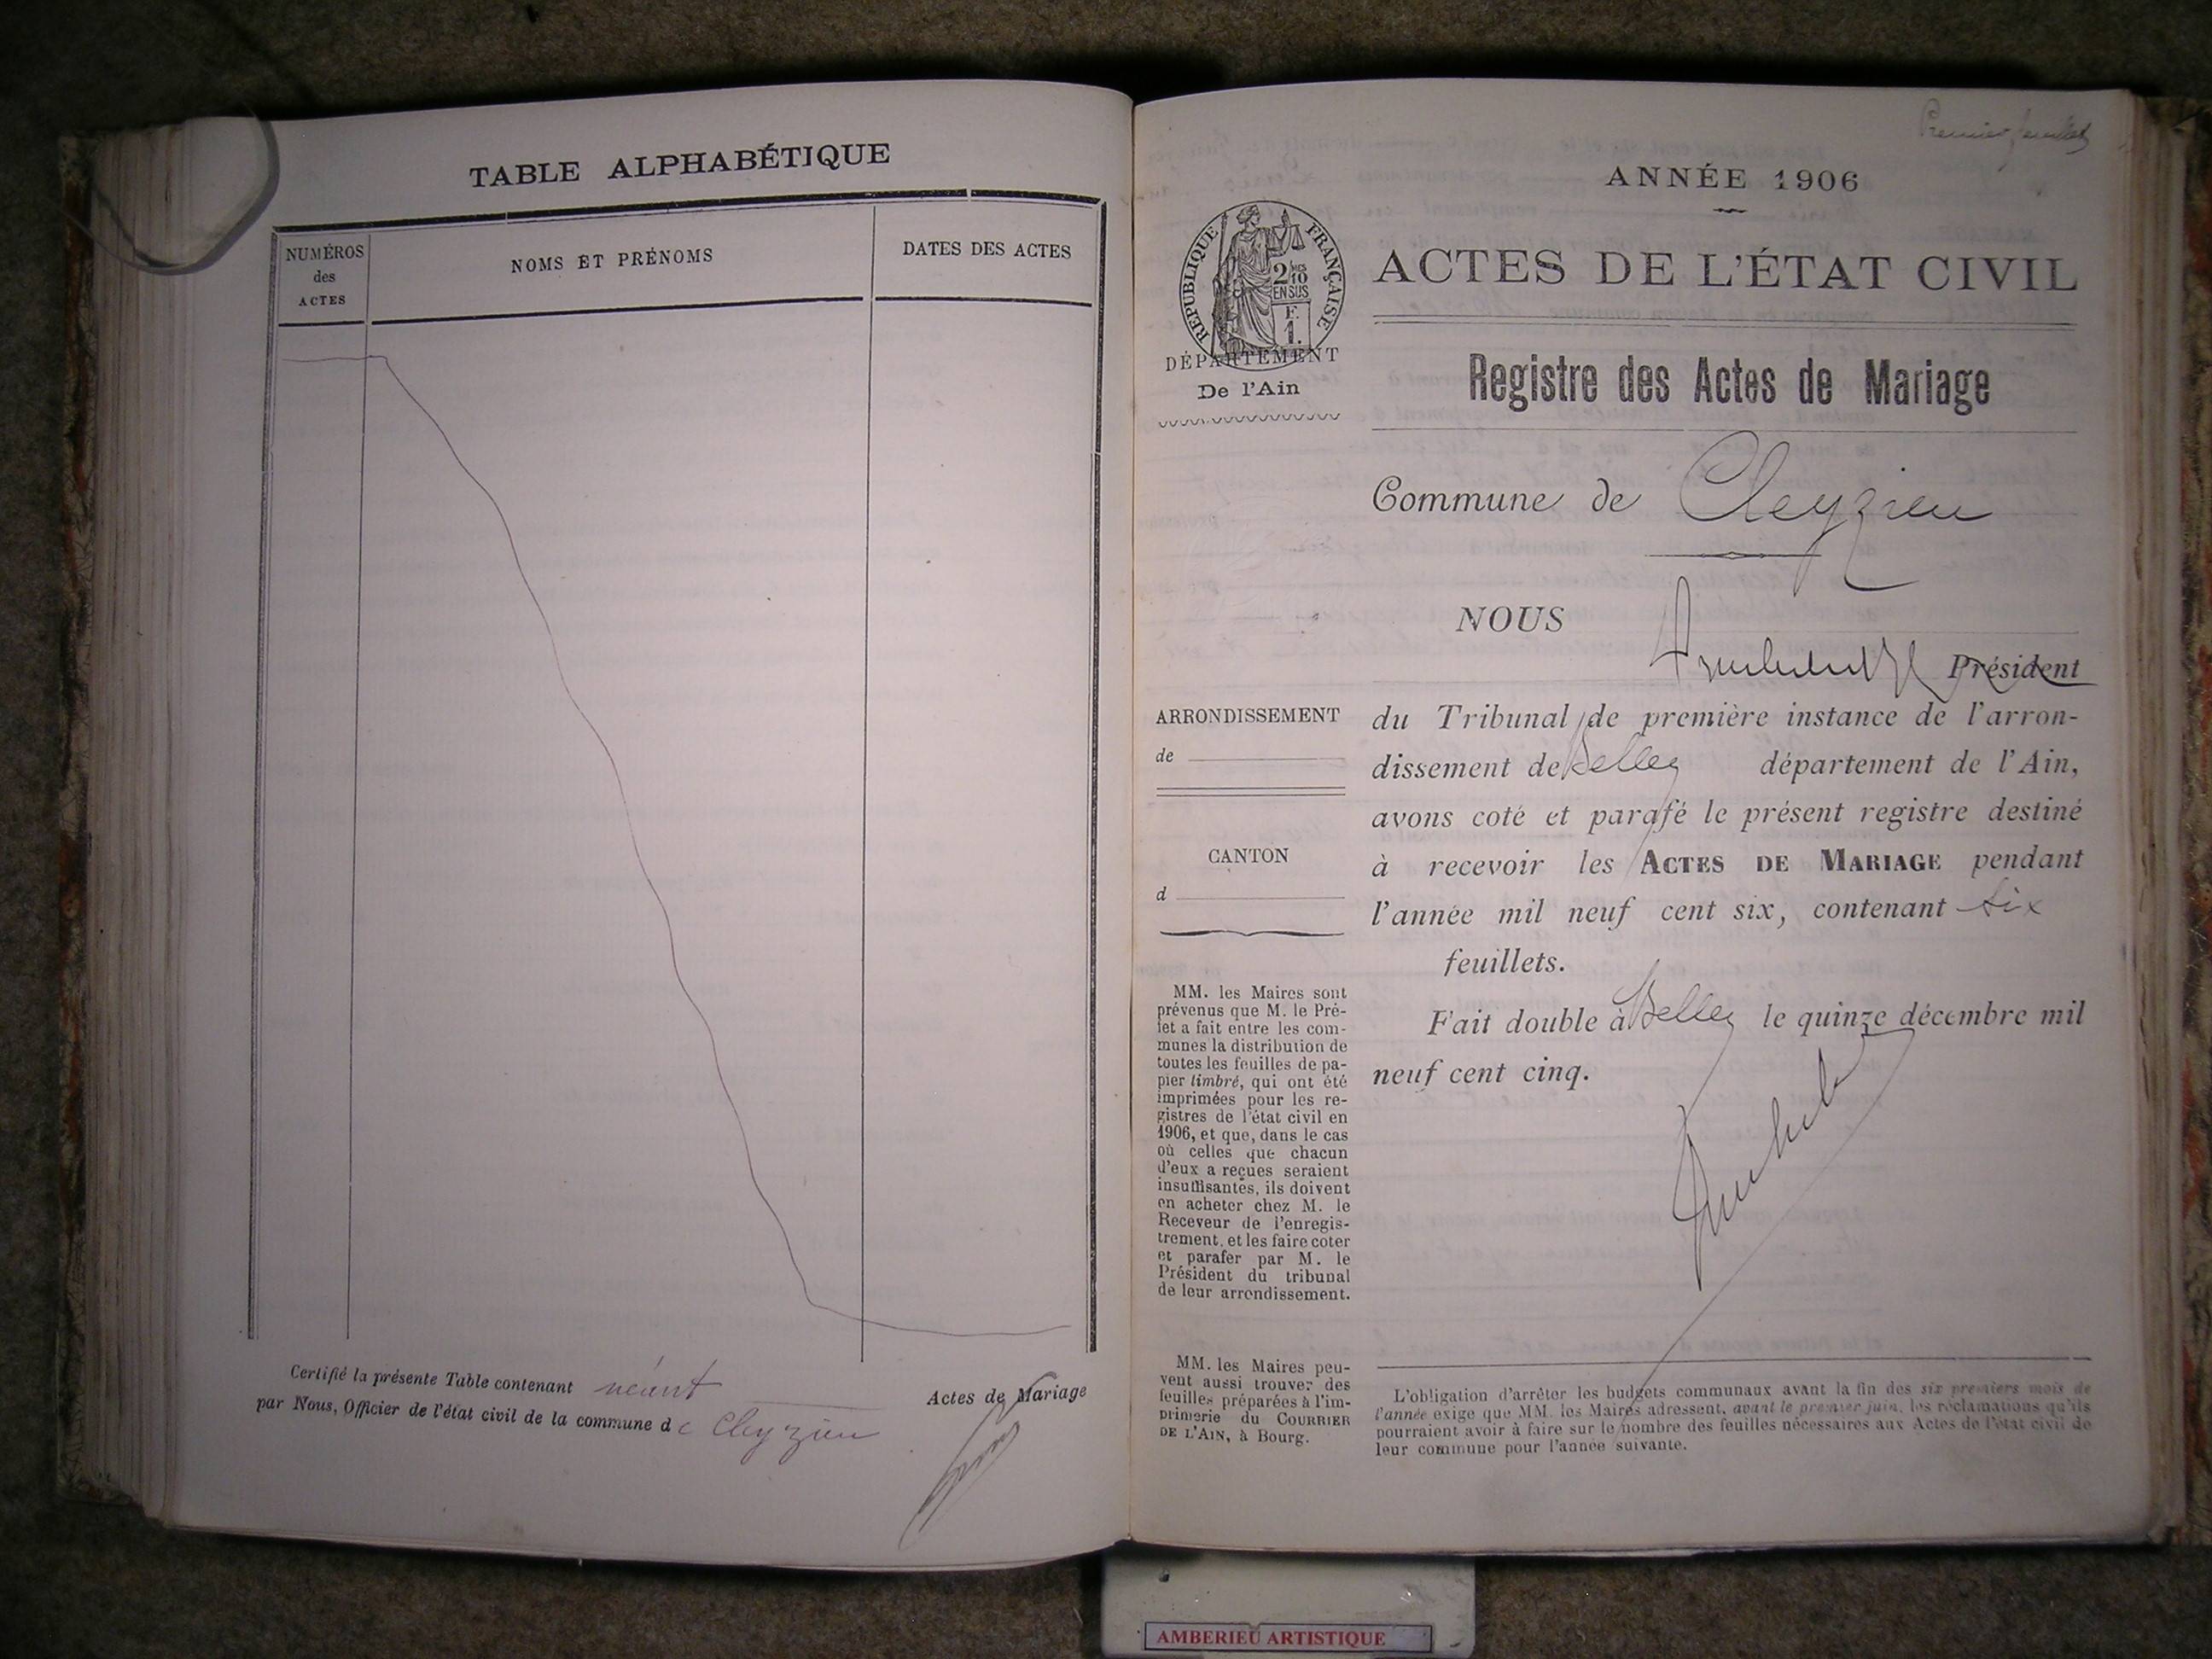 TABLE ALPHABÉTIQUE
NUMÉROS
des
ACTES
NOMS ET PRÉNOMS
DATES DES ACTES
Certifié la présente Table contenant néant Actes de Mariage
par Nous, Officier de l'état civil de la commune de Cleyzieu
Premier feuillet
ANNÉE 1906
RÉPUBLIQUE FRANÇAISE
2/10
EN SUS
F.
1.
DÉPARTEMENT
De l'Ain
ACTES DE L'ÉTAT CIVIL
Registre des Actes de Mariage
Commune de Cleyzieu
NOUS
Président
du Tribunal de première instance de l'arron-
dissement de Belley département de l'Ain,
avons coté et parafé le présent registre destiné
à recevoir les ACTES DE MARIAGE pendant
l'année mil neuf cent six, contenant six
feuillets.
Fait double à Belley le quinze décembre mil
neuf cent cinq.
ARRONDISSEMENT
de
CANTON
d
MM. les Maires sont
prévenus que M. le Pré-
fet a fait entre les com-
munes la distribution de
toutes les feuilles de pa-
pier timbré, qui ont été
imprimées pour les re-
gistres de l'état civil en
1906, et que, dans le cas
où celles que chacun
d'eux a reçues seraient
insuffisantes, ils doivent
en acheter chez M. le
Receveur de l'enregis-
trement, et les faire coter
et parafer par M. le
Président du tribunal
de leur arrondissement.
MM. les Maires peu-
vent aussi trouver des
feuilles préparées à l'im-
primerie du COURRIER
DE L'AIN, à Bourg.
L'obligation d'arrêter les budgets communaux avant la fin des six premiers mois de
l'année exige que MM. les Maires adressent, avant le premier juin, les réclamations qu'ils
pourraient avoir à faire sur le nombre des feuilles nécessaires aux Actes de l'état civil de
leur commune pour l'année suivante.
AMBERIEU ARTISTIQUE